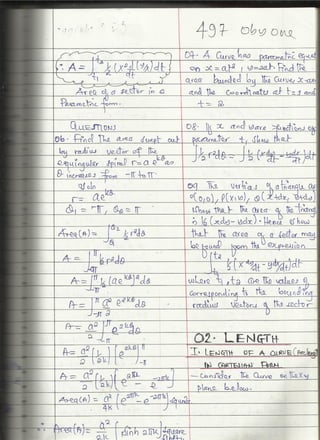 497 Obyone
∴ A = ∫ t₂ t₁ ½ (x² d/dt (y/x) dt)
Area of a sector in a
Parametric form.
QUESTIONS
06. Find the area swept out
by radius vector of the
equiangular spiral r = a e^kθ as
θ increases from -π to π
Soln
r = a e^kθ
θ₁ = -π, θ₂ = π
Area(A) = ∫ θ₂ θ₁ ½ r² dθ
A = ∫ π -π ½ r² dθ
A = ∫ π -π ½ (a e^kθ)² dθ
A = ∫ π -π a²/2 e^2kθ dθ
A = a²/2 ∫ π -π e^2kθ dθ
A = a²/2 (1/2k) [e^2kθ] π -π
A = a²/2 (1/2k) (e^2πk - e^-2πk)
Area(A) = a²/4k (e^2πk - e^-2πk) square
∴ Area(A) = a²/2k [sinh 2πk] square
07. A Curve has parametric
x = at²,
area bounded by the curve, x-
and the coordinates at t = 1 and
t = 2
08. If x and y are functions of
parameter t, show that
∫ ½ r² dθ = ∫ ½ (x dy/dt - y dx/dt) dt
09. The of a triangle
O(0,0), P(x,y), Q(x+dx, y+dy)
show that the area of the triangle
is ½ (xdy - ydx). Hence show
that the area of a sector may
be found from the expression
∫ t₂ t₁ ½ (x dy/dt - y dx/dt) dt
where t₁, t₂ are the values of
corresponding to the bounding
radius vectors of the sector
02. LENGTH
I. LENGTH OF A CURVE
IN CARTESIAN FORM
- Consider the Curve on the xy
plane below.